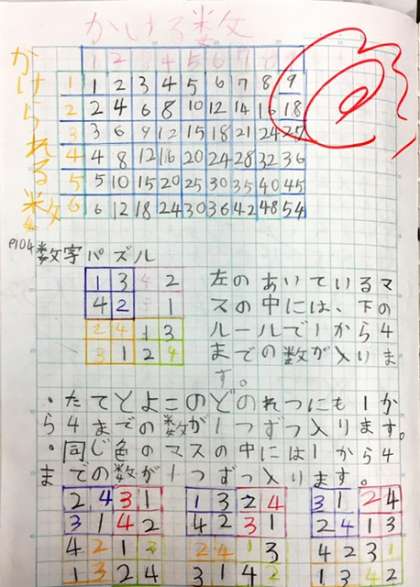 かける数
かけられる数
1 2 3 4 5 6 7 8 9
1 1 2 3 4 5 6 7 8 9
2 2 4 6 8 10 12 14 16 18
3 3 6 9 12 15 18 21 24 27
4 4 8 12 16 20 24 28 32 36
5 5 10 15 20 25 30 35 40 45
6 6 12 18 24 30 36 42 48 54
P104 数字パズル
1 3 4 2
4 2 3 1
2 4 1 3
3 1 2 4
左のあいているマ
スの中には、下の
ルールで1から4
までの数が入りま
す。
・たてとよこのどのれつにも1か
ら4までの数が1つずつ入ります。
・同じ色のマスの中には1から4
までの数が1つずつ入ります。
2 4 3 1 1 3 2 4 3 1 2 4
3 1 4 2 4 2 3 1 2 4 1 3
4 2 1 3 2 4 1 3 4 2 3 1
1 3 2 4 3 1 4 2 1 3 4 2